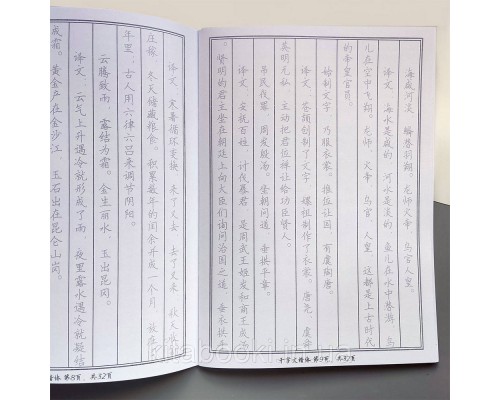 译文,寒暑循环变换,来了又去,去了又来,秋天收
庄稼,冬天储藏粮食。积累数年的闰余并成一个月,放在
年里;古人用六律六吕来调节阴阳。
云腾致雨,露结为霜。金生丽水,玉出昆冈。
译文,云气上升遇冷就形成了雨,夜里露水遇冷就凝结
成霜。黄金产在金沙江,玉石出在昆仑山岗。
第8页,共32页
海咸河淡,鳞潜羽翔。龙师火帝,鸟官人皇。
译文,海水是咸的,河水是淡的,鱼儿在水中潜游,鸟
儿在空中飞翔。龙师、火帝、鸟官、人皇,这都是上古时代
的帝皇官员。
始制文字,乃服衣裳。推位让国,有虞陶唐。
译文,苍颉创制了文字,嫘祖制作了衣裳。唐尧、虞舜
英明无私,主动把君位禅让给功臣贤人。
吊民伐罪,周发殷汤。坐朝问道,垂拱平章。
译文,安抚百姓,讨伐暴君,是周武王姬发和商王成汤
贤明的君主坐在朝廷上向大臣们询问治国之道,垂衣拱手
千字文楷体 第9页,共32页